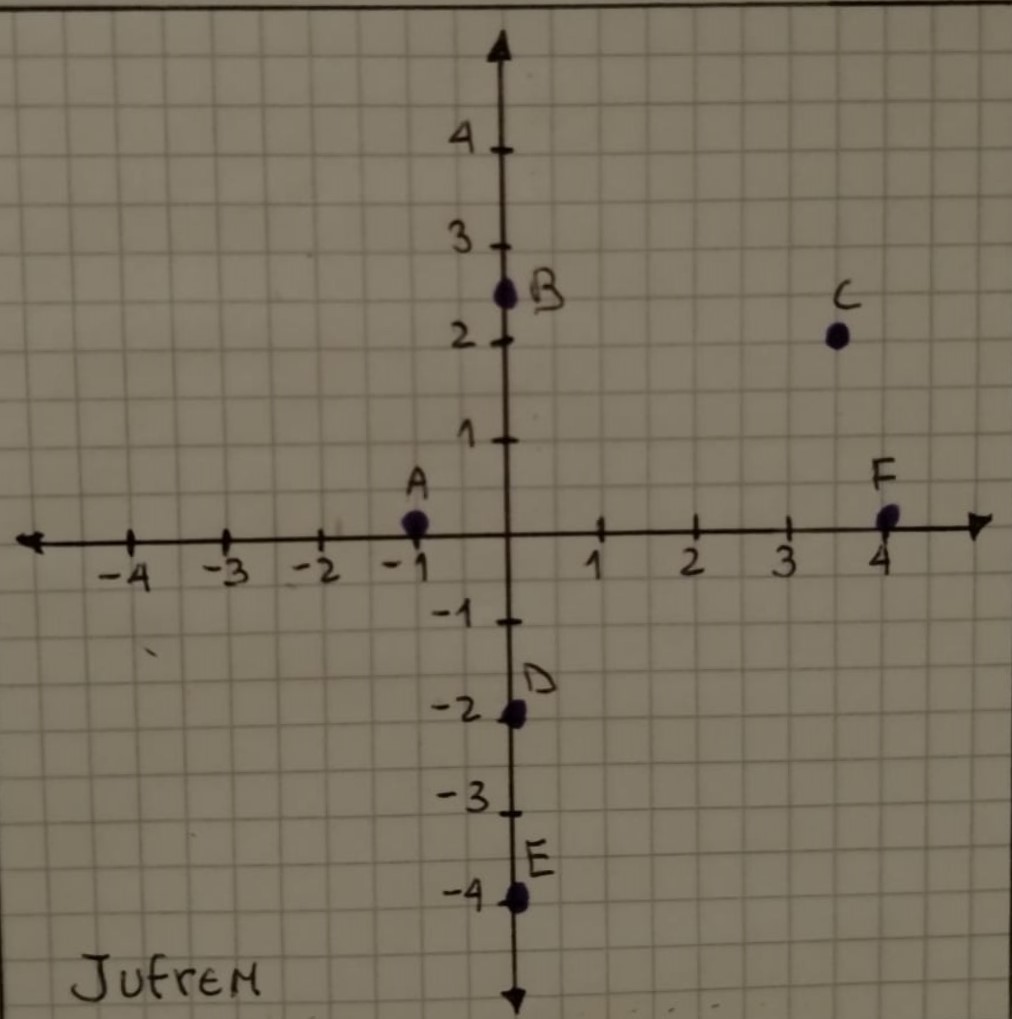 4
3
B
C
2
1
A
F
-4 -3 -2 -1 1 2 3 4
-1
D
-2
-3
E
-4
JUfrEM